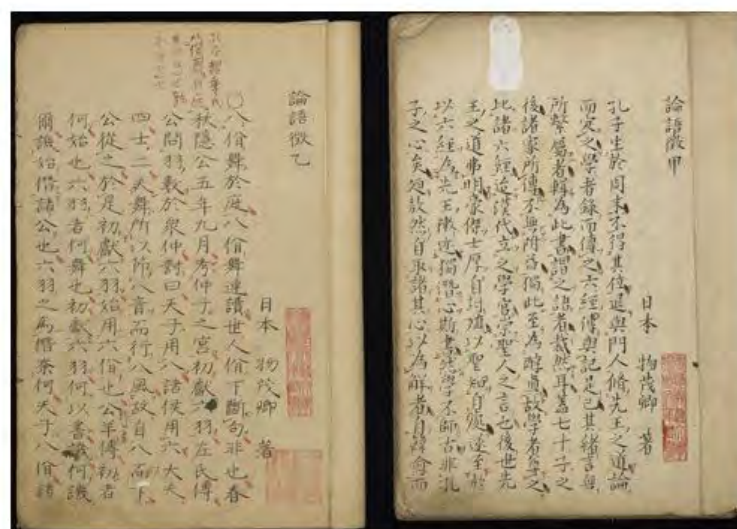 論語徵甲
日本 物茂卿 著
孔子生於周末不得其位退與門人脩先王之道論
而定之學者錄而傳之六經傳與記是已其緒言無
所繫屬者輯為此書謂之語者然耳蓋七十子之
後諸家所傳不無附益獨此至為醇真故學者宗之
比諸六經迨漢代立之學官宗聖人之言也後世先
王之道弗明豪傑士厚自封殖以聖知自處遂至於
以六經為先王陳迹獨潛心斯書然學不師古非孔
子之心矣故然自取諸其心以為解者自韓愈而
論語徵乙
日本 物茂卿 著
○八佾舞於庭八佾舞連讀世人佾下斷句非也春
秋隱公五年九月考仲子之宮初獻六羽左氏傳
公問羽數於衆仲對曰天子用八諸侯用六大夫
四士二夫舞所以節八音而行八風故自八而下
公從之於是初獻六羽始用六佾也公羊傳初者
何始也六羽者何舞也初獻六羽何以書譏何譏
爾譏始僭諸公也六羽之為僭奈何天子八佾諸